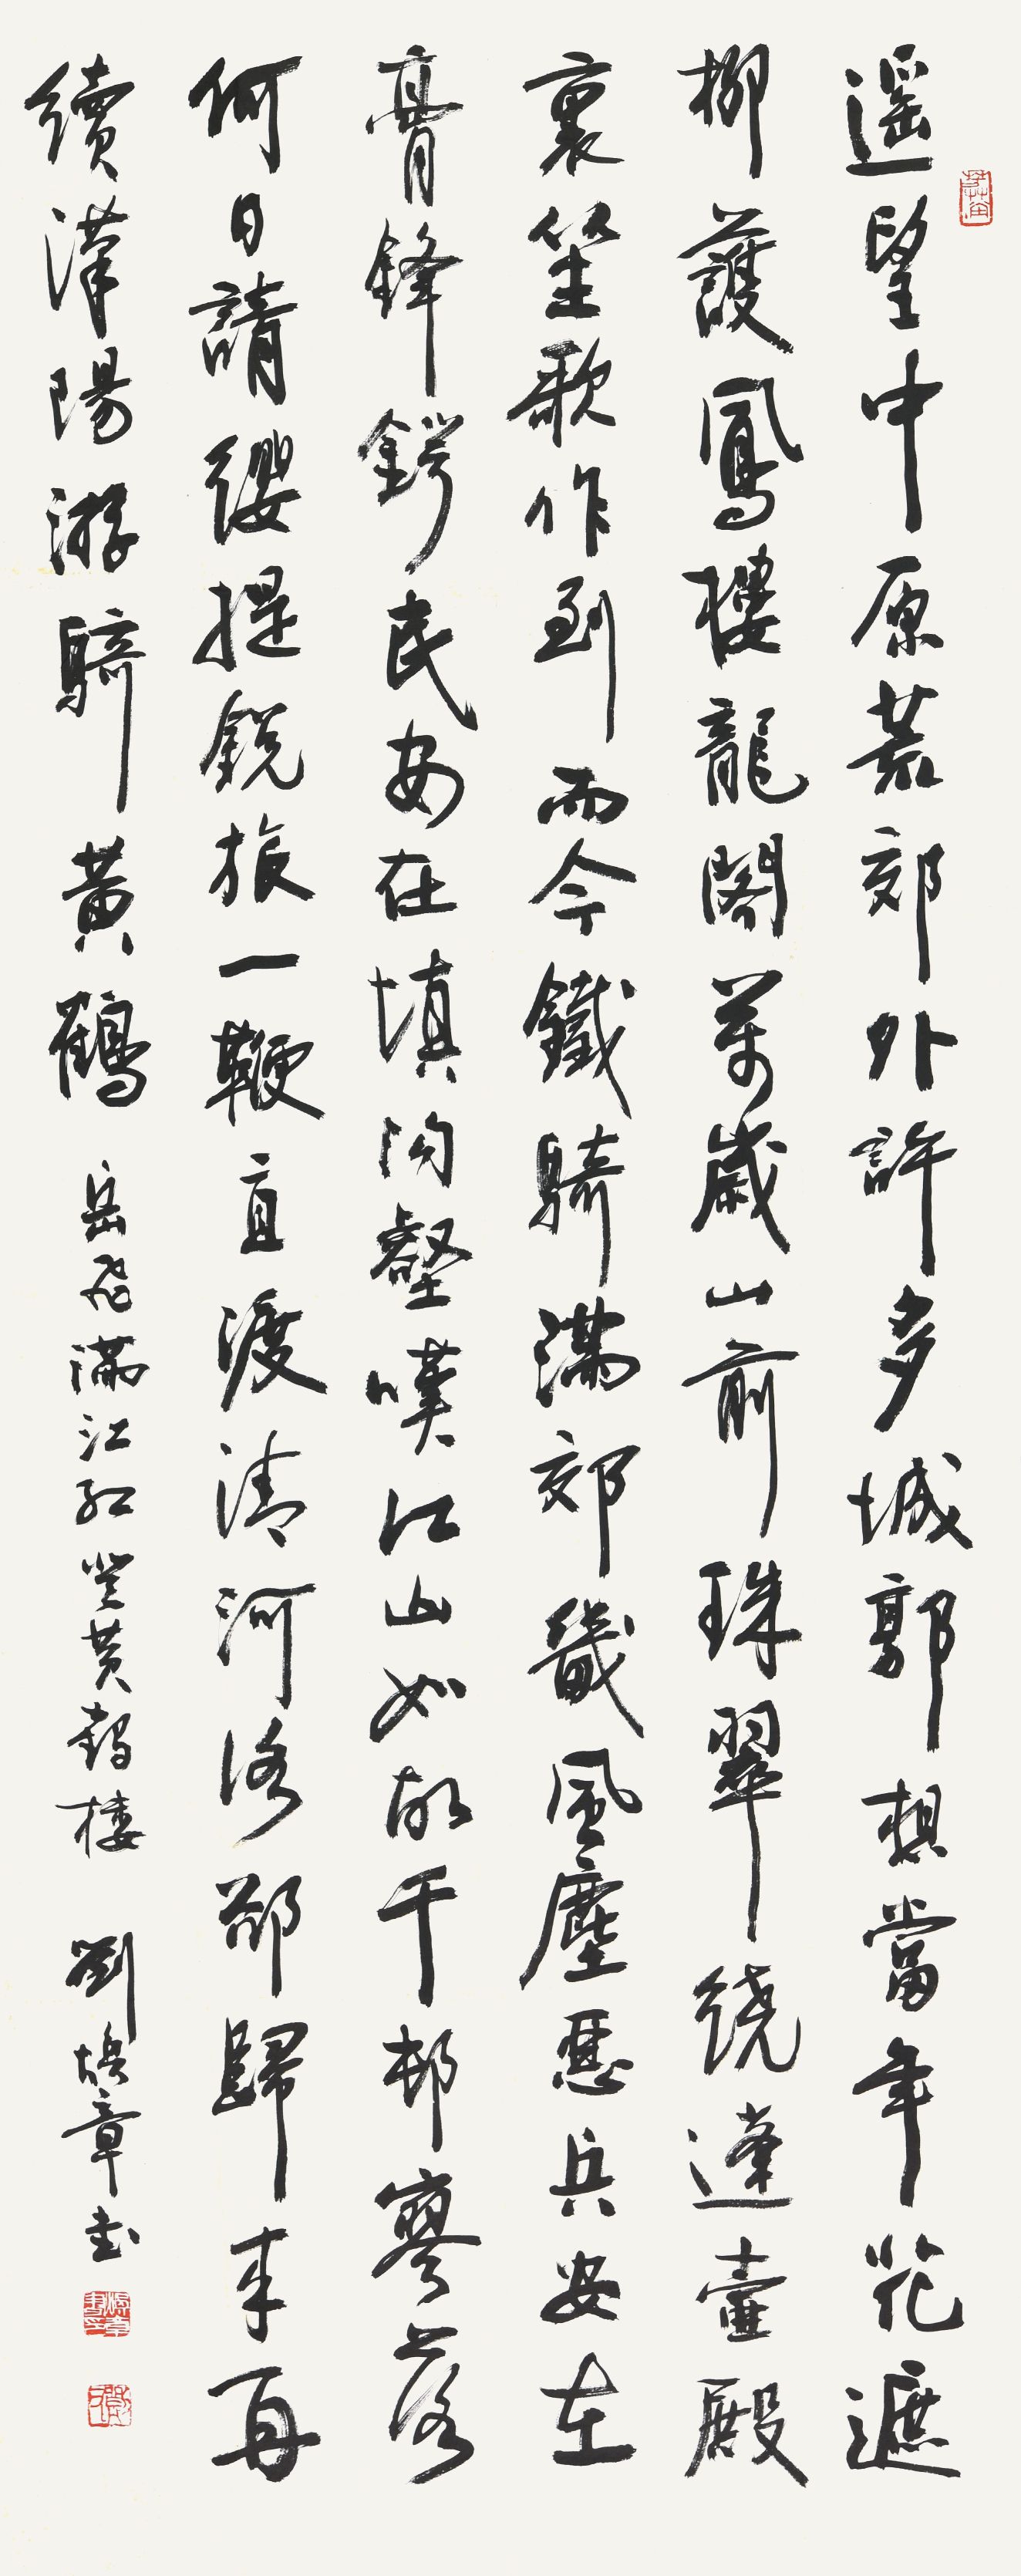 遥望中原荒郊外許多城郭想當年花遮
柳護鳳樓龍閣萬歲山前珠翠繞蓬壺殿
裏笙歌作到而今鐵騎滿郊畿風塵惡兵安在
膏鋒鍔民安在填溝壑嘆江山如故千邨寥落
何日請纓提銳旅一鞭直渡清河洛却歸來再
續漢陽游騎黃鶴 岳飛滿江紅登黃鶴樓 劉炳章書